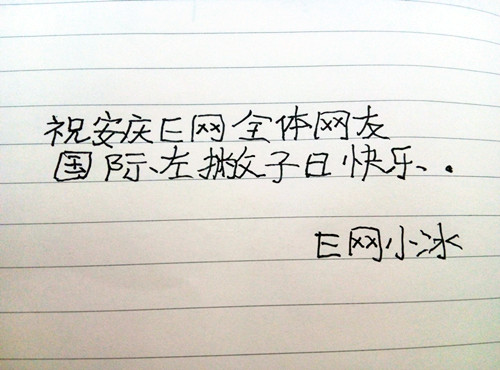 祝安庆E网全体网友
国际左撇子日快乐..
E网小冰